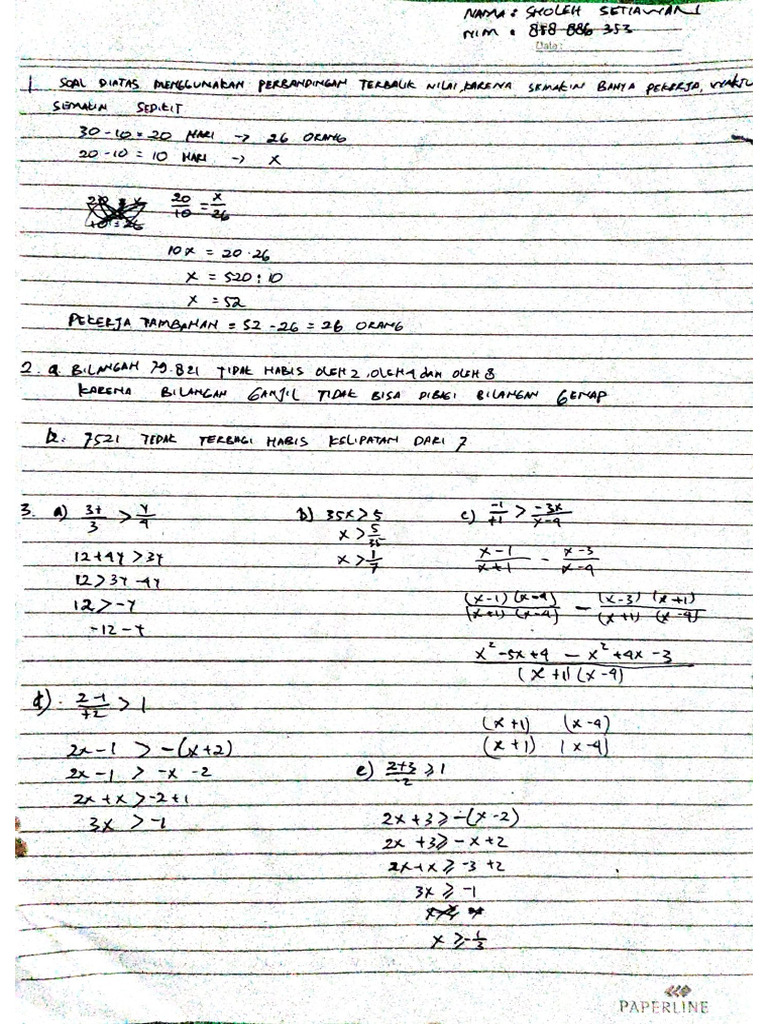 NAMA : SHOLEH SETIAWAN
NIM : 858 886 353
Date :
1 SOAL DIATAS MENGGUNAKAN PERBANDINGAN TERBALIK NILAI, KARENA SEMAKIN BANYA PEKERJA, WAKTU
SEMAKIN SEDIKIT
30 - 10 = 20 HARI -> 26 ORANG
20 - 10 = 10 HARI -> X
20/10 = x/26
10x = 20 · 26
x = 520 : 10
x = 52
PEKERJA TAMBAHAN = 52 - 26 = 26 ORANG
2. a BILANGAN 79.821 TIDAK HABIS OLEH 2, OLEH 4 dan OLEH 8
KARENA BILANGAN GANJIL TIDAK BISA DIBAGI BILANGAN GENAP
b. 7521 TIDAK TERBAGI HABIS KELIPATAN DARI 7
3. a) 3+/3 > y/4
12 + 4y > 3y
12 > 3y - 4y
12 > -y
-12 - y
b) 35x > 5
x > 5/35
x > 1/7
c) -1/+1 > -3x/x-4
x-1/x+1 - x-3/x-4
(x-1)(x-4)/(x+1)(x-4) - (x-3)(x+1)/(x+1)(x-4)
x² - 5x + 4 - x² + 4x - 3/(x+1)(x-4)
(x+1) (x-4)
(x+1) (x-4)
d). 2-1/+2 > 1
2x - 1 > -(x+2)
2x - 1 > -x - 2
2x + x > -2 + 1
3x > -1
e) 2+3/-2 ≥ 1
2x + 3 ≥ -(x-2)
2x + 3 ≥ -x + 2
2x + x ≥ -3 + 2
3x ≥ -1
x ≥ -1/3
PAPERLINE